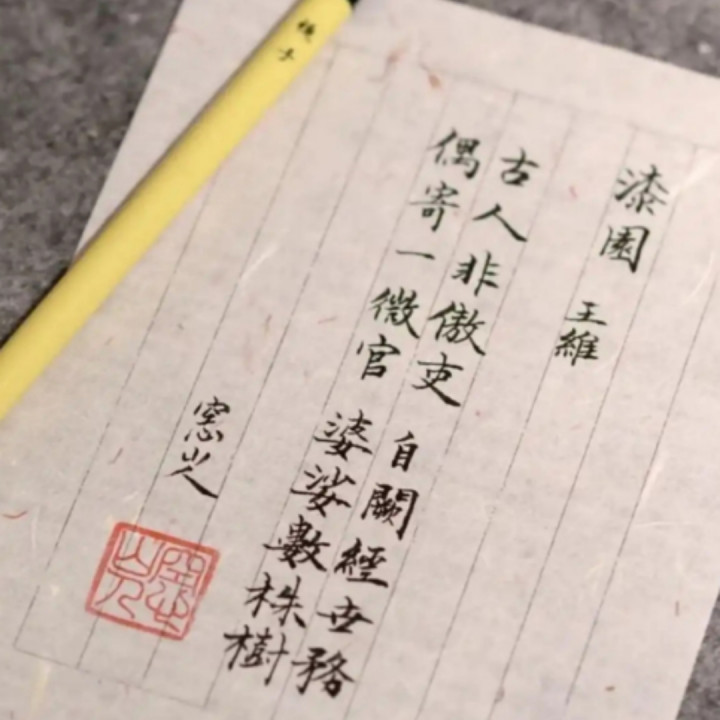 漆園
王維
古人非傲吏 自闕經世務
偶寄一微官 婆娑數株樹
窓山人